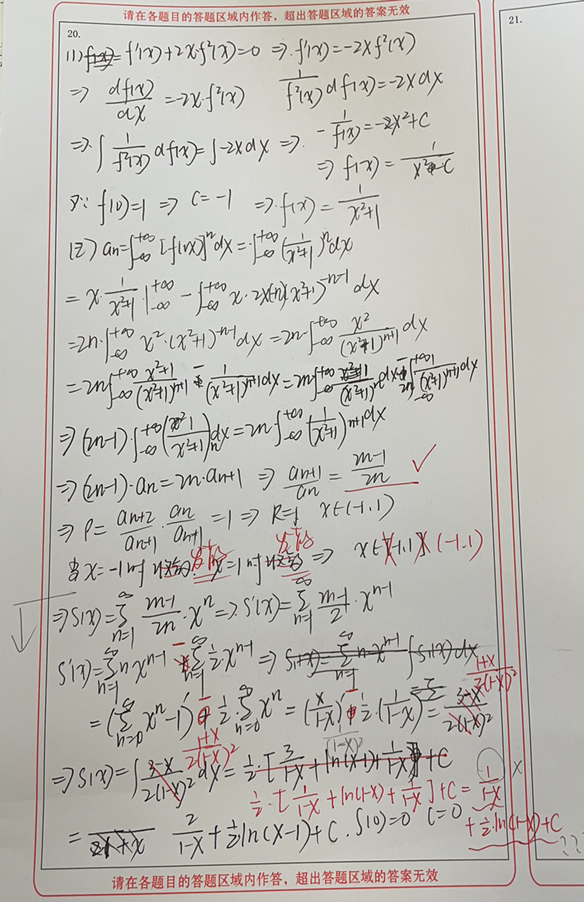 请在各题目的答题区域内作答，超出答题区域的答案无效
20.
21.
(1) f'(x)+2x·f²(x)=0 ⇒ f'(x)=-2xf²(x)
⇒ df(x)/dx =-2x·f²(x) 1/f²(x) df(x)=-2xdx
⇒ ∫ 1/f²(x) df(x)=∫-2xdx ⇒ -1/f(x)=-2x²+C
⇒ f(x)= 1/x²-C
又∵ f(0)=1 ⇒ C=-1 ⇒ f(x)= 1/x²+1
(2) an=∫_{-∞}^{+∞} [f(x)]ⁿdx=∫_{-∞}^{+∞} (1/x²+1)ⁿdx
= x· 1/x²+1 |_{-∞}^{+∞} - ∫_{-∞}^{+∞} x·2x(-n)(x²+1)^{-n-1} dx
=2n·∫_{-∞}^{+∞} x²·(x²+1)^{-n-1}dx=2n·∫_{-∞}^{+∞} x²/(x²+1)^{n+1} dx
=2n∫_{-∞}^{+∞} x²+1/(x²+1)^{n+1} - 1/(x²+1)^{n+1} dx=2n∫_{-∞}^{+∞} 1/(x²+1)ⁿ dx-2n∫_{-∞}^{+∞} 1/(x²+1)^{n+1} dx
⇒ (2n-1)∫_{-∞}^{+∞} (1/x²+1)ⁿ dx=2n·∫_{-∞}^{+∞} (1/x²+1)^{n+1}dx
⇒ (2n-1)·an=2n·an+1 ⇒ an+1/an = 2n-1/2n ✓
⇒ ρ= an+2/an+1 · an/an+1 =1 ⇒ R=1 x∈(-1,1)
当x=-1时 发散 x=1时 发散 ⇒ x∈ (-1,1)
⇒ S(x)=∑_{n=1}^{∞} 2n-1/2n ·xⁿ ⇒ S'(x)=∑_{n=1}^{∞} 2n-1/2 ·x^{n-1}
S'(x)=∑_{n=1}^{∞} n·x^{n-1} - ∑_{n=1}^{∞} ½·x^{n-1} ⇒ ∫S'(x)dx
=(∑_{n=0}^{∞} xⁿ-1)' - ½·∑_{n=0}^{∞} xⁿ = (x/1-x)' - ½·(1/1-x) = 3-x/2(1-x)² 1+x/2(1-x)²
1+x/2(1-x)² 1/(1-x)²
⇒ S(x)=∫ 3-x/2(1-x)² dx= ½·[3/1-x+ln(x-1)+1/1-x]+C
½·[1/1-x+ln(1-x)+1/1-x]+C= 1/1-x
+½·ln(1-x)+C
= 2/1-x+½·ln(x-1)+C. S(0)=0 C=0
??
请在各题目的答题区域内作答，超出答题区域的答案无效